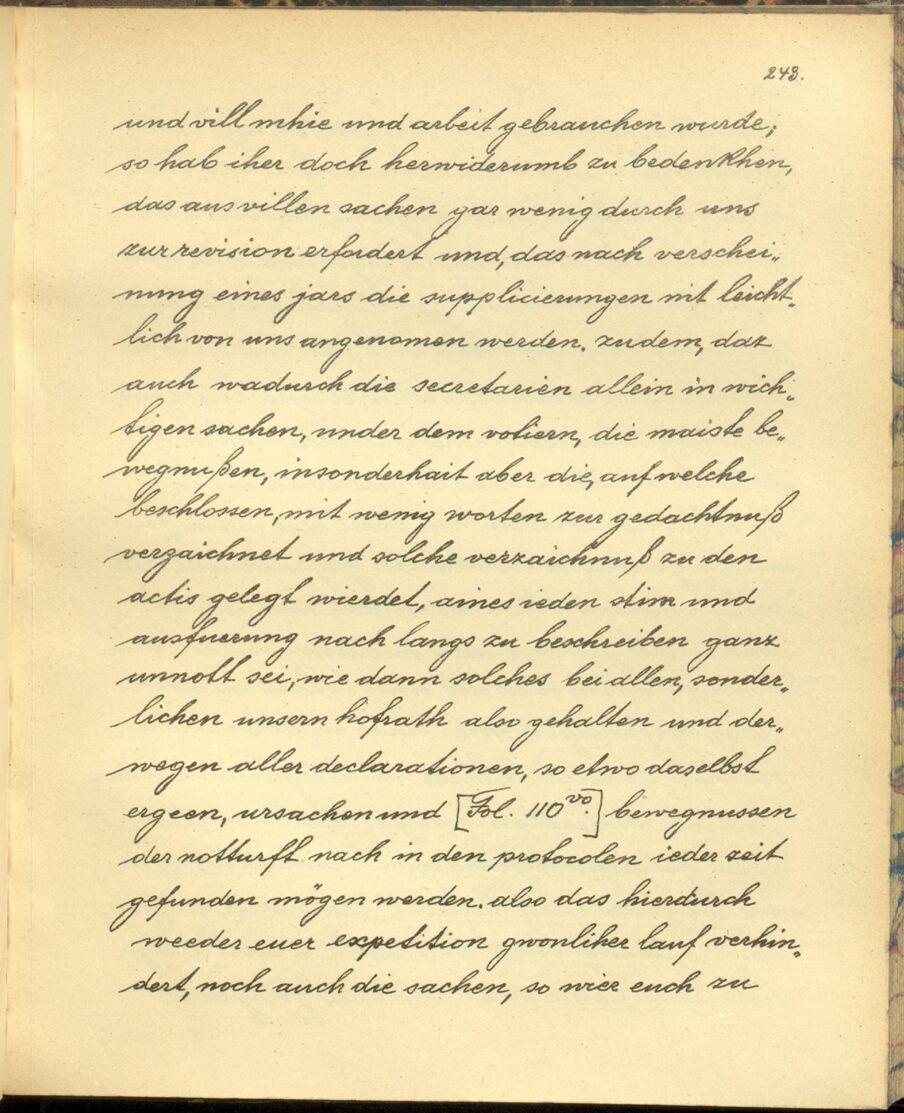 243.
und vill mhie und arbeit gebrauchen wurde;
so hab iher doch herwiderumb zu bedenkhen,
das aus villen sachen gar wenig durch uns
zur revision erfordert und, das nach verschei„
nung eines jars die supplicierungen nit leicht„
lich von uns angenomen werden. zudem, daz
auch wadurch die secretarien allein in wich„
tigen sachen, under dem votiern, die maiste be„
wegnußen, insonderhait aber die, auf welche
beschlossen, mit wenig worten zur gedachtnuß
verzaichnet und solche verzaichnuß zu den
actis gelegt wierdet, aines ieden stim und
ausfuerung nach langs zu beschreiben ganz
unnott sei, wie dann solches bei allen, sonder„
lichen unsern hofrath also gehalten und der„
wegen aller declarationen, so etwo daselbst
ergeen, ursachen und [Fol. 110 vo.] bewegnussen
der notturft nach in den protocolen ieder zeit
gefunden mögen werden. also das hierdurch
weeder euer expetition gwonliher lauf verhin„
dert, noch auch die sachen, so wier euch zu